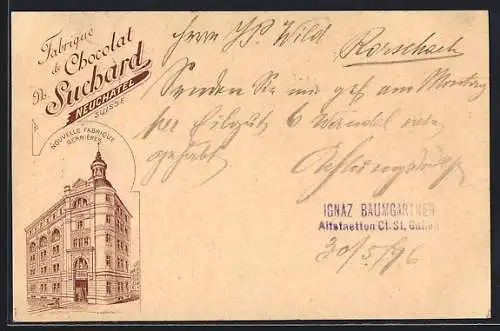 Fabrique
de Chocolat
Ph. Suchard
NEUCHATEL
SUISSE
NOUVELLE FABRIQUE
SERRIÈRES
Herrn Wild
Rorschach
Senden Sie mir gef. am Montag
per Eilgut 6
gehabt
IGNAZ BAUMGARTNER
Altstaetten Ct. St. Gallen
30/5/96